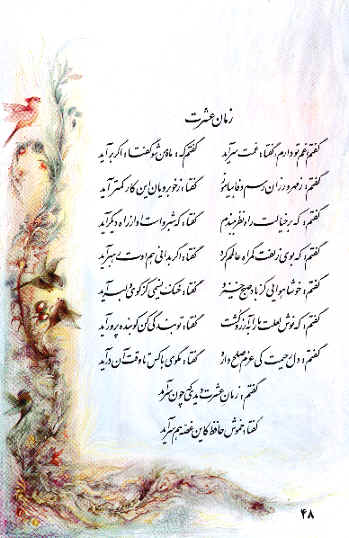 زمان عشرت
گفتم غم تو دارم، گفتا: غمت سرآید گفتم که: ماه من شو گفتا: اگر برآید
گفتم: ز مهرورزان رسم وفا بیاموز گفتا: ز خوبرویان این کار کمتر آید
گفتم: که بر خیالت راه نظر ببندم گفتا: که شبرو است او از راه دیگر آید
گفتم: که بوی زلفت گمراه عالمم کرد گفتا: اگر بدانی هم اوت رهبر آید
گفتم: خوشا هوایی کز باد صبح خیزد گفتا: خنک نسیمی کز کوی دلبر آید
گفتم: که نوش لعلت ما را به آرزو کشت گفتا: تو بندگی کن کو بنده پرور آید
گفتم: دل رحیمت کی عزم صلح دارد گفتا: مگوی با کس تا وقت آن درآید
گفتم: زمان عشرت دیدی که چون سرآمد
گفتا: خموش حافظ کاین غصه هم سرآید
۴۸